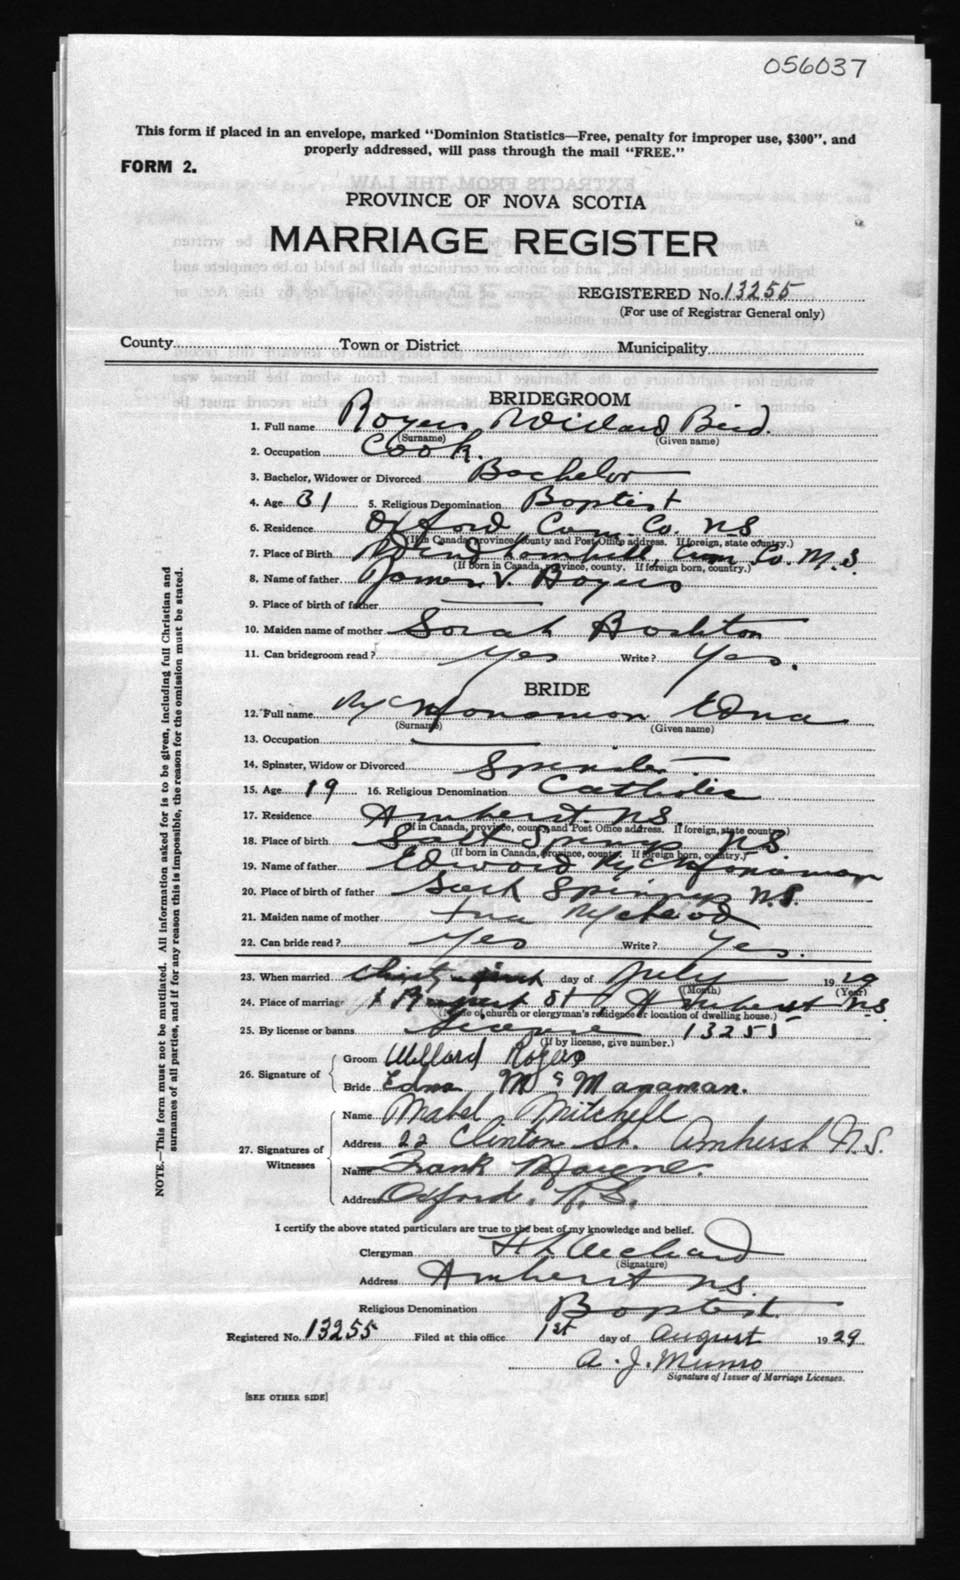 056037
This form if placed in an envelope, marked "Dominion Statistics—Free, penalty for improper use, $300", and
properly addressed, will pass through the mail "FREE."
FORM 2.
PROVINCE OF NOVA SCOTIA
MARRIAGE REGISTER
REGISTERED No. 13255
(For use of Registrar General only)
County Town or District Municipality
BRIDEGROOM
1. Full name Rogers Willard
(Surname) (Given name)
2. Occupation Cook.
3. Bachelor, Widower or Divorced Bachelor
4. Age 31 5. Religious Denomination Baptist
6. Residence Oxford Cum. Co. N.S
(If in Canada, province, county and Post Office address. If foreign, state country.)
7. Place of Birth Cum Co. N.S.
(If born in Canada, province, county. If foreign born, country.)
8. Name of father James V. Rogers
9. Place of birth of father
10. Maiden name of mother Sarah
11. Can bridegroom read? Yes Write? Yes.
BRIDE
12. Full name McManaman Edna
(Surname) (Given name)
13. Occupation
14. Spinster, Widow or Divorced Spinster
15. Age 19 16. Religious Denomination Catholic
17. Residence Amherst. N.S.
(If in Canada, province, county and Post Office address. If foreign, state country)
18. Place of birth Salt Springs N.S.
(If born in Canada, province, county. If foreign born, country.)
19. Name of father Edward McManaman
20. Place of birth of father Salt Springs N.S.
21. Maiden name of mother McLeod
22. Can bride read? Yes Write? Yes.
23. When married day of July 1929
(Month) (Year)
24. Place of marriage St Amherst N.S.
(Name of church or clergyman's residence or location of dwelling house.)
25. By license or banns License 13255
(If by license, give number.)
26. Signature of
Groom Willard Rogers
Bride Edna McManaman.
27. Signatures of Witnesses
Name Mabel Mitchell
Address 22 Clinton St. Amherst N.S.
Name Frank
Address Oxford. N.S.
I certify the above stated particulars are true to the best of my knowledge and belief.
Clergyman
(Signature)
Address Amherst N.S.
Religious Denomination Baptist.
Registered No. 13255 Filed at this office 1st day of August 1929
A. J. Munro
Signature of Issuer of Marriage Licenses.
[SEE OTHER SIDE]
NOTE.—This form must not be mutilated. All information asked for is to be given, including full Christian and
surnames of all parties, and if for any reason this is impossible, the reason for the omission must be stated.